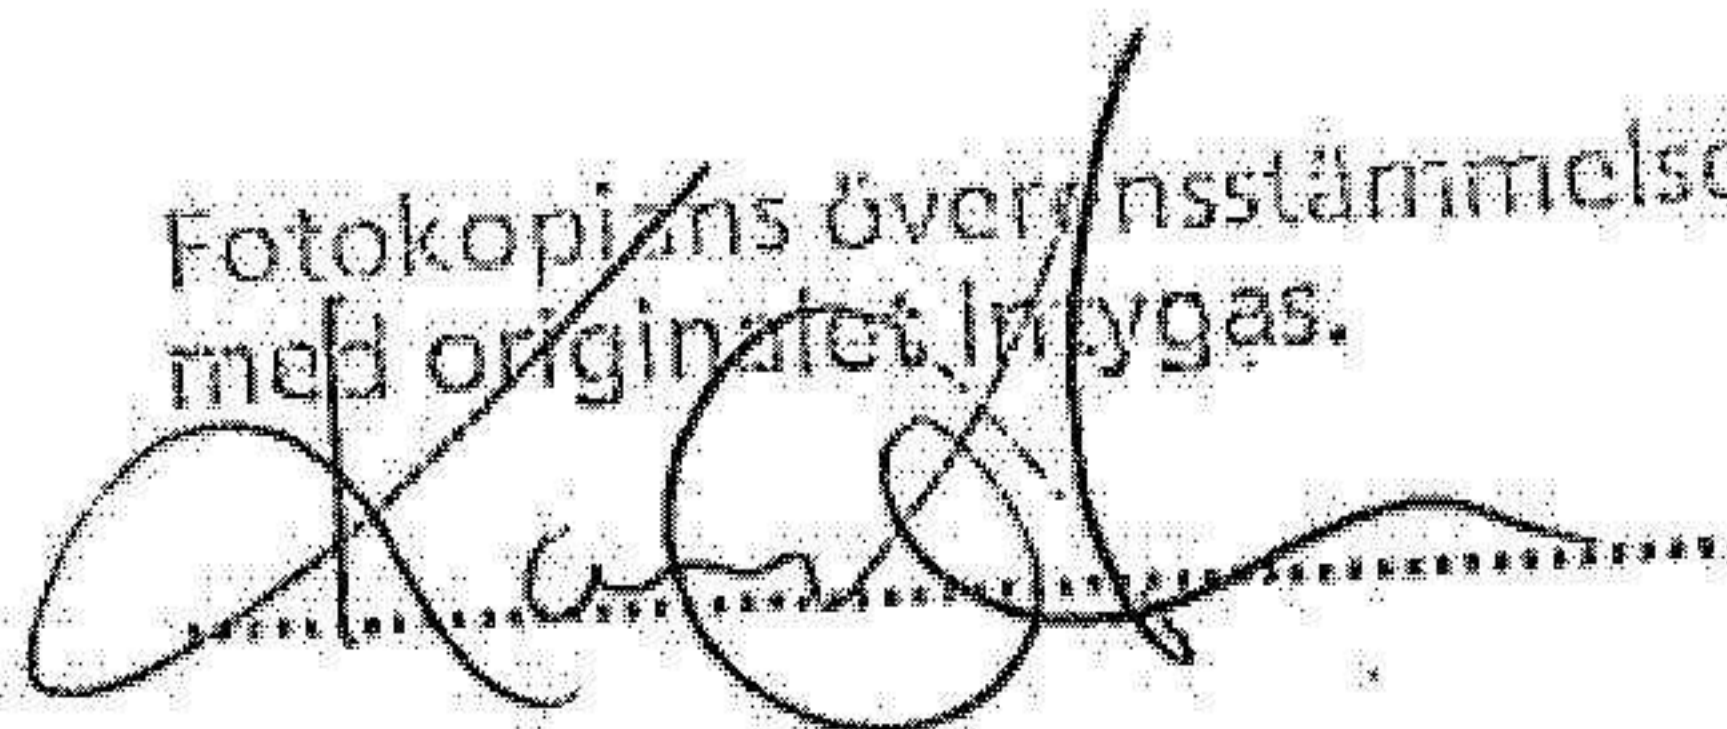 Fotokopians överensstämmelse
med originalet Intygas.